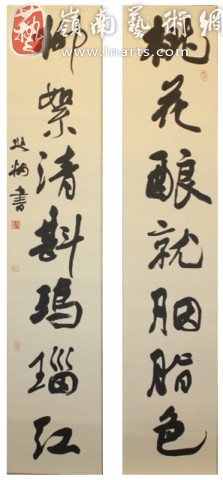 嶺南藝術網
www.lnarts.com
桃花酿就胭脂色
清斟瑪瑙红
書